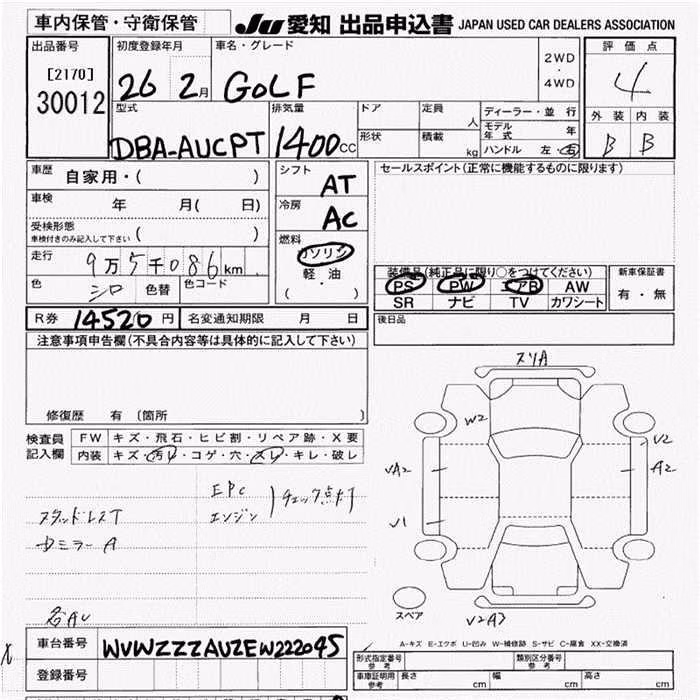 車内保管・守衛保管
JU 愛知 出品申込書 JAPAN USED CAR DEALERS ASSOCIATION
出品番号
[2170]
30012
初度登録年月
26 2月
車名・グレード
GOLF
2WD
・
4WD
評価点
4
外装 内装
B B
型式
DBA-AUCPT
排気量
1400cc
ドア
形状
定員
人
積載
kg
ディーラー・並行
モデル年式 年
ハンドル 左・右
車歴
自家用・( )
車検
年 月( 日)
受検形態
車検付きのみ記入して下さい ( )
走行
9万5千086km
色
シロ
色替
色コード
シフト
AT
冷房
AC
燃料
ガソリン
軽・油
( )
セールスポイント(正常に機能するものに限ります)
装備品(純正品に限り○をつけてください)
PS PW エアB AW
SR ナビ TV カワシート
新車保証書
有・無
R券 14520円
名変通知期限 月 日
後日品
注意事項申告欄(不具合内容等は具体的に記入して下さい)
修復歴 有 (箇所 )
検査員
記入欄
FW キズ・飛石・ヒビ割・リペア跡・X要
内装 キズ・汚レ・コゲ・穴・スレ・キレ・破レ
EPC
エンジン
チェック点灯
スタッドレスT
ミラーA
各AU
スリA
W2
V2
VA2
A2
V1
V2A2
スペア
A-キズ E-エクボ U-凹み W-補修跡 S-サビ C-腐食 XX-交換済
車台番号
WVWZZZAUZEW222045
登録番号
形式指定番号
参考
類別区分番号
参考
車庫証明用
参考
長さ cm 幅 cm 高さ cm